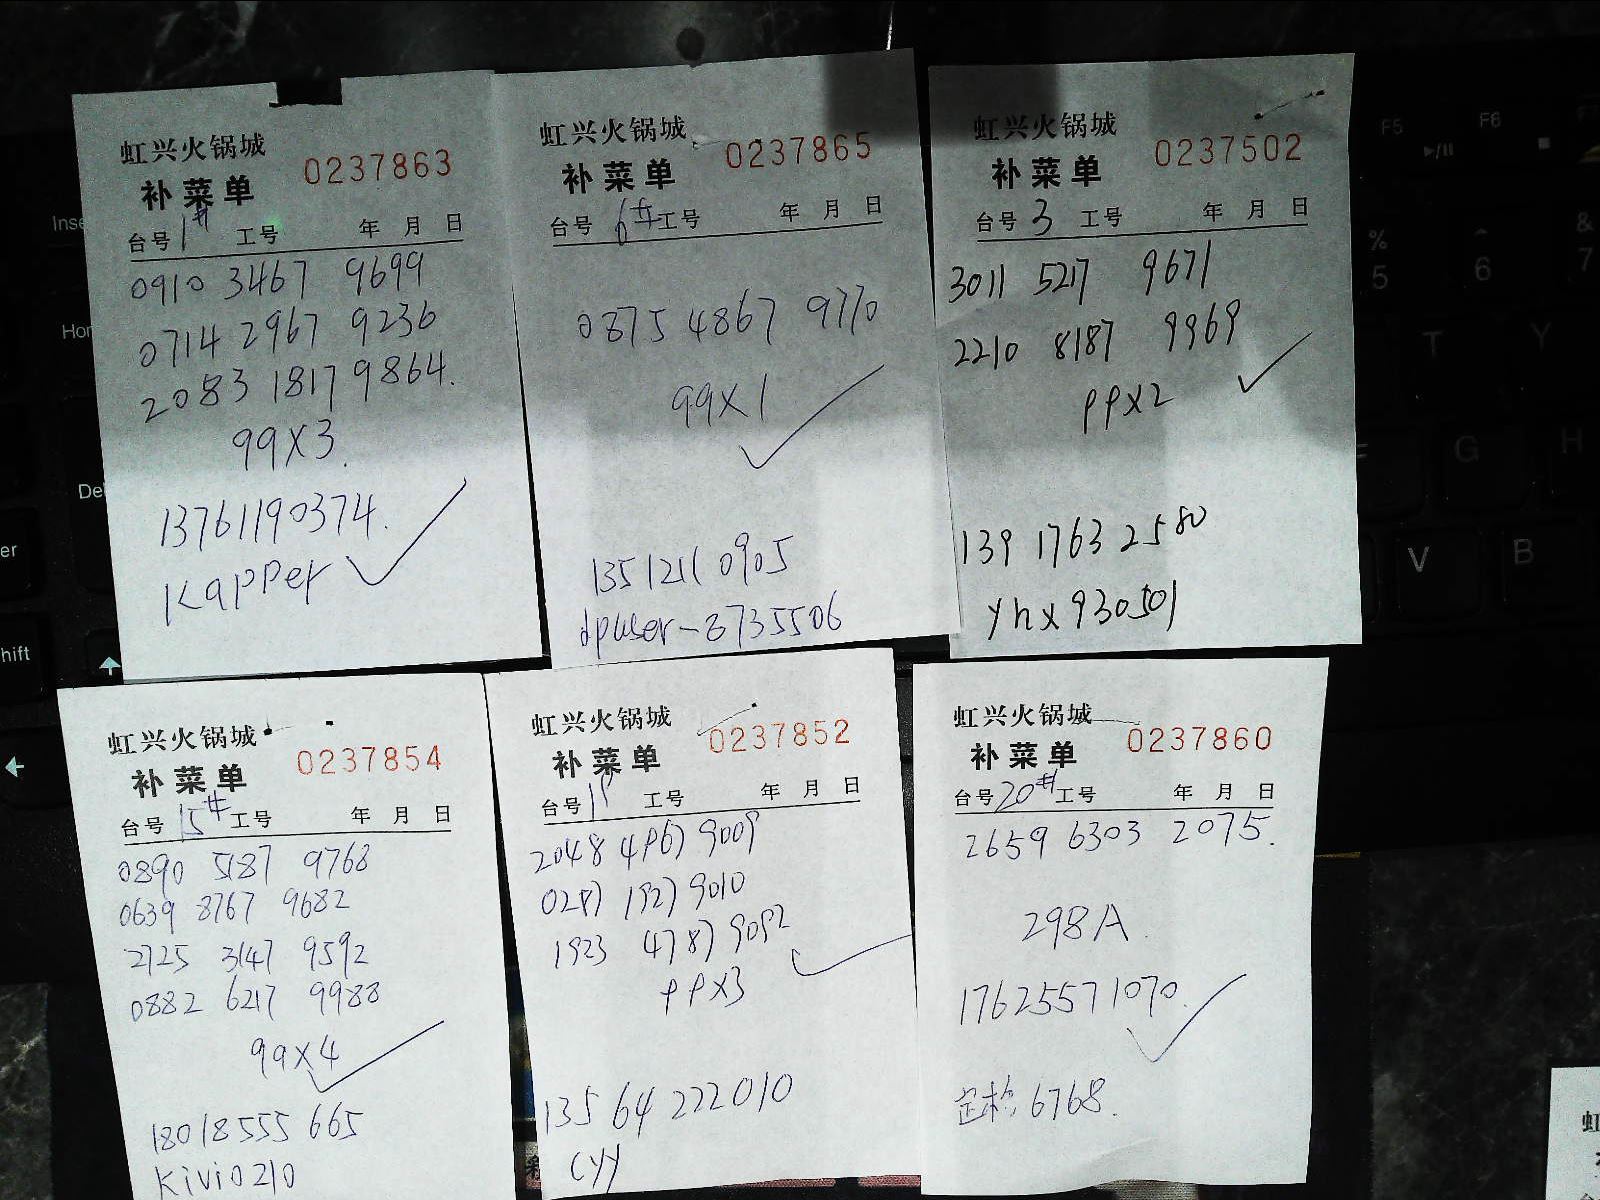 虹兴火锅城
0237863
补菜单
台号 1# 工号 年 月 日
0910 3467 9699
0714 2967 9236
2083 1817 9864.
99X3.
13761190374.
Kapper
虹兴火锅城
0237865
补菜单
台号 6# 工号 年 月 日
0875 4867 9770
99X1
135 1211 0905
dpuser-8735506
虹兴火锅城
0237502
补菜单
台号 3 工号 年 月 日
3011 5217 9671
2210 8187 9969
PPX2
139 1763 2580
yhx930501
虹兴火锅城
0237854
补菜单
台号 15# 工号 年 月 日
0890 5187 9768
0639 8767 9682
2725 3147 9592
0882 6217 9988
99X4
18018555 665
Kivi0210
虹兴火锅城
0237852
补菜单
台号 工号 年 月 日
2048 4967 9009
0287 1927 9010
1923 4787 9092
PPX3
135 64 222010
cyy
虹兴火锅城
0237860
补菜单
台号 20# 工号 年 月 日
2659 6303 2075.
298A.
17625571070.
6768.
F5
F6
%
5
6
&
7
T
Y
G
H
V
B